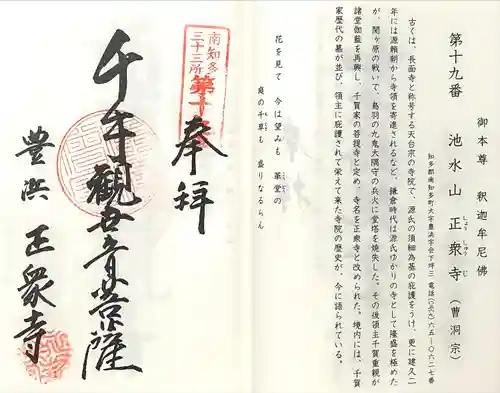 第十九番
御本尊 釈迦牟尼佛
池水山 正衆寺(曹洞宗)
しょう しゅう じ
古くは、長面寺と称号する天台宗の寺院で、源氏の須細為基の庇護をうけ、更に建久二
年には源頼朝から寺領を寄進されるなど、鎌倉時代は源氏ゆかりの寺として隆盛を極めた
が、関ヶ原の戦いで、鳥羽の九鬼大隅守の兵火に堂塔を焼失した。その後領主千賀重親が
諸堂伽藍を再興し、千賀家の菩提寺と定め、寺名を正衆寺と改められた。境内には、千賀
家歴代の墓が並び、領主に庇護されて栄えて来た寺院の歴史が、今に語られている。
花を見て 今は望みも 華堂の
庭の千草も 盛りなるらん
南知多
三十三所
第十九
奉拝
千手観世音菩薩
豊浜 正衆寺